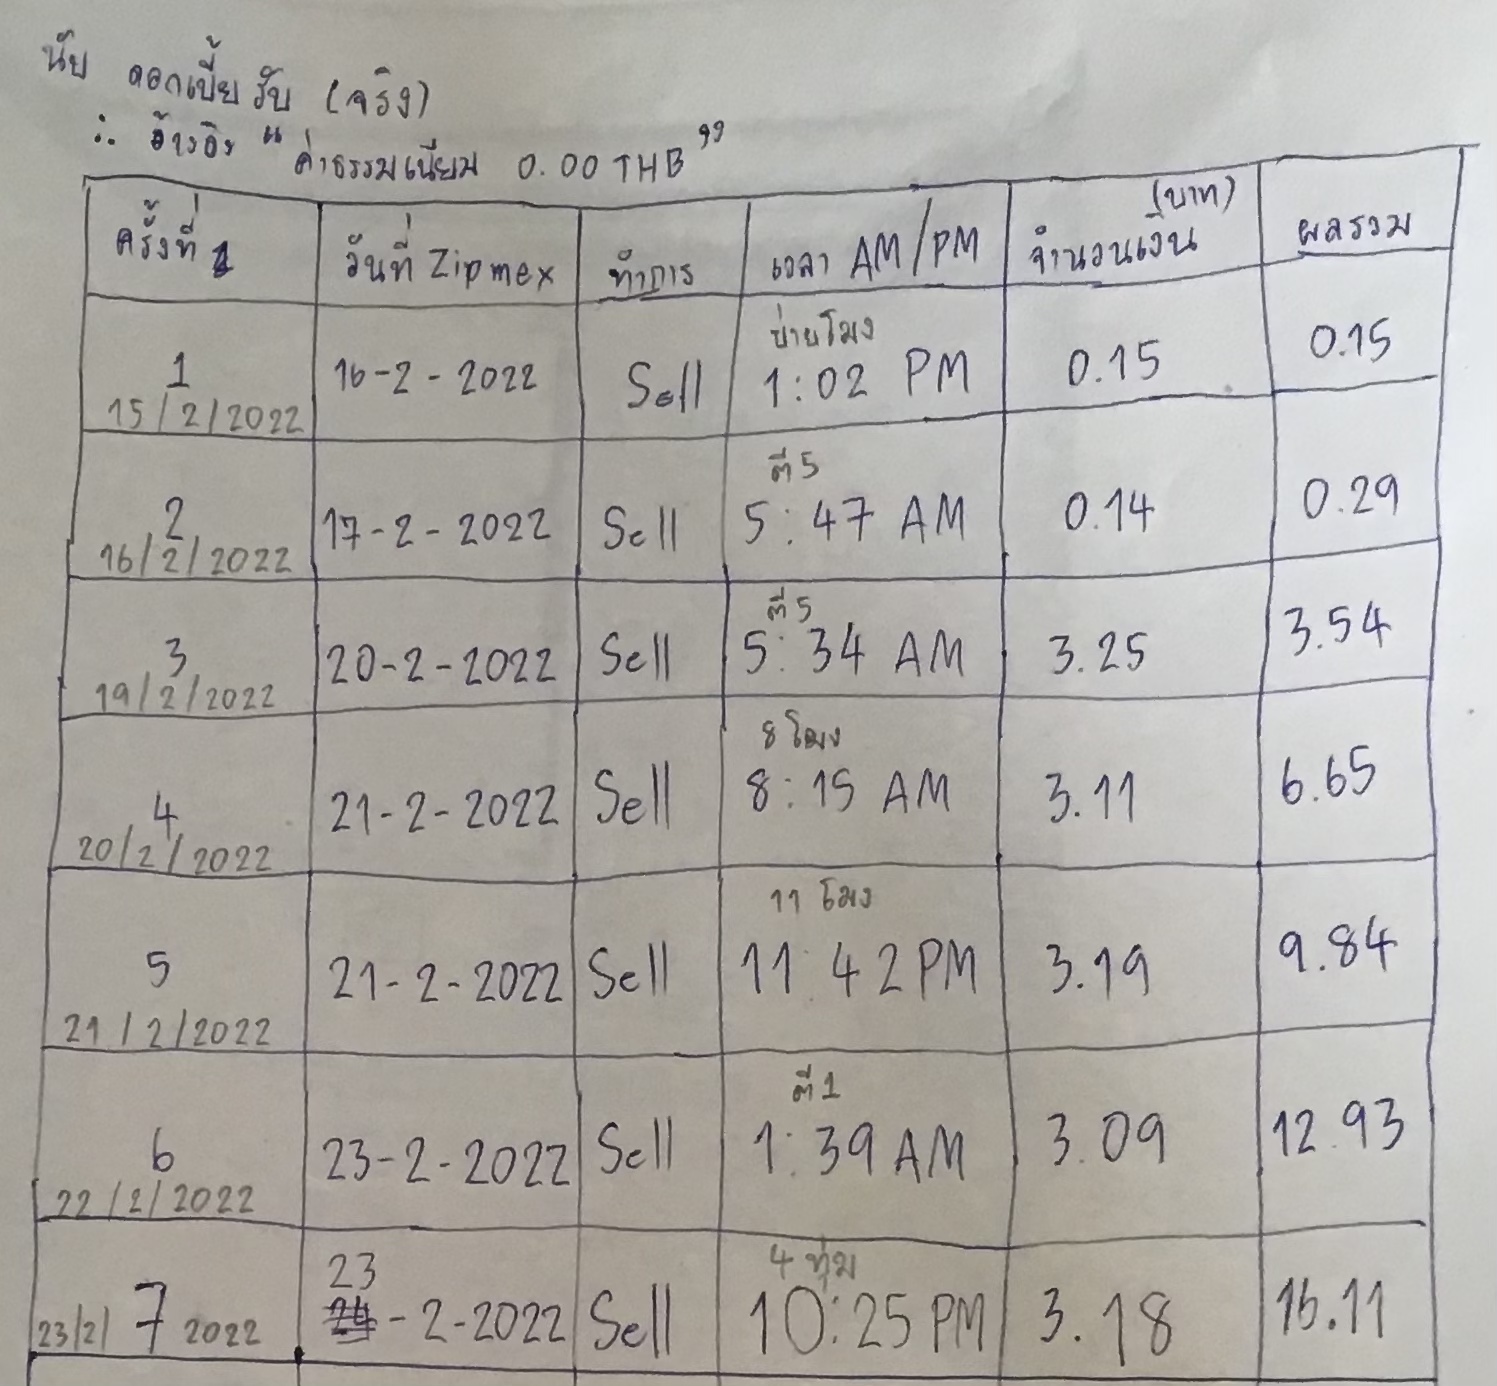 นับ ดอกเบี้ย รับ (จริง)
∴ อ้างอิง "ค่าธรรมเนียม 0.00 THB"
ครั้งที่ 1 วันที่ Zipmex ทำการ เวลา AM/PM (บาท) จำนวนเงิน ผลรวม
บ่ายโมง
1 16-2-2022 Sell 1:02 PM 0.15 0.15
15/2/2022
ตี 5
2 17-2-2022 Sell 5:47 AM 0.14 0.29
16/2/2022
ตี 5
3 20-2-2022 Sell 5:34 AM 3.25 3.54
19/2/2022
8 โมง
4 21-2-2022 Sell 8:15 AM 3.11 6.65
20/2/2022
11 โมง
5 21-2-2022 Sell 11:42 PM 3.19 9.84
21/2/2022
ตี 1
6 23-2-2022 Sell 1:39 AM 3.09 12.93
22/2/2022
23 4 ทุ่ม
23/2/ 7 2022 24-2-2022 Sell 10:25 PM 3.18 16.11